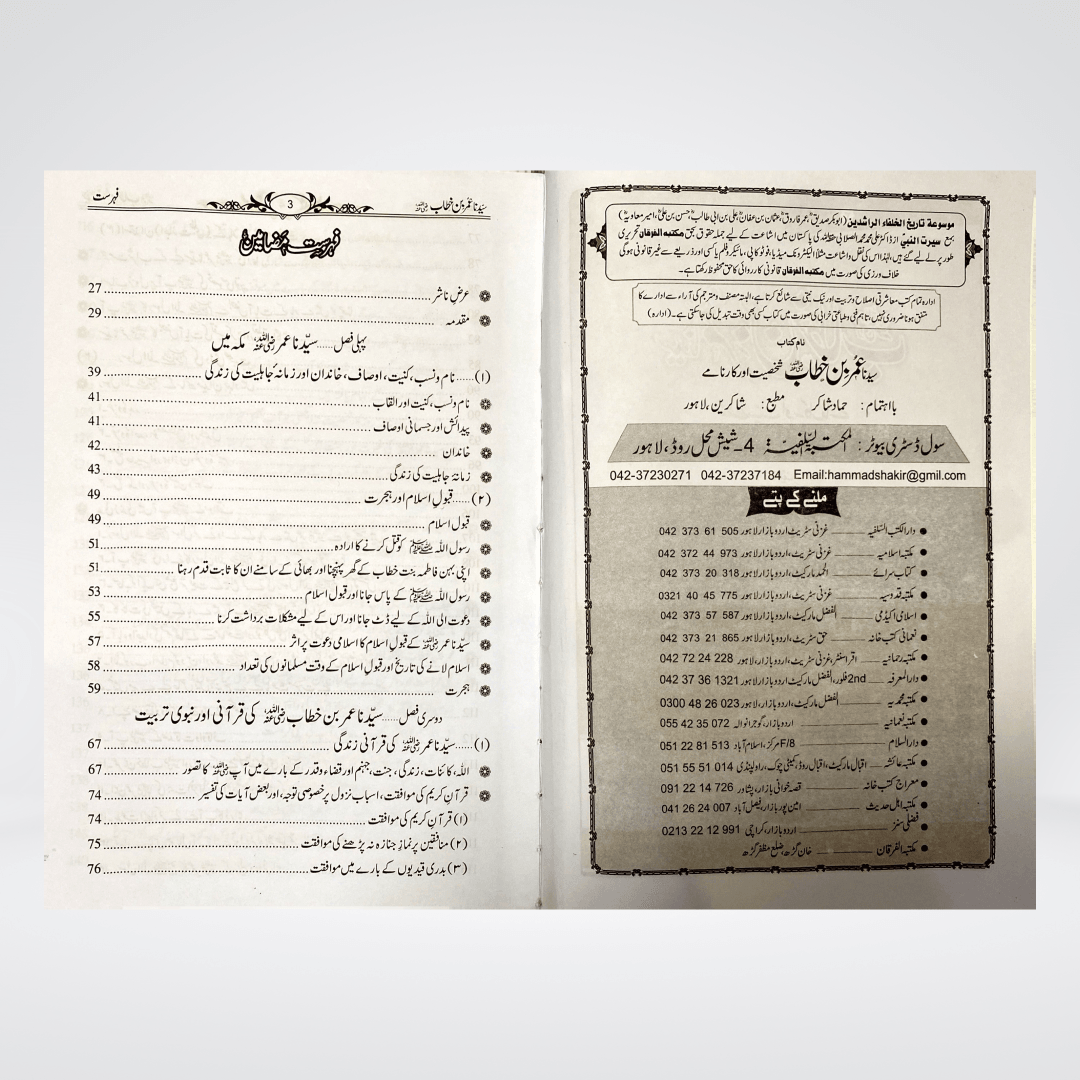 موسوعة تاریخ الخلفاء الراشدین (ابوبکر صدیقؓ، عمر فاروقؓ، عثمان بن عفانؓ، علی بن ابی طالبؓ، حسن بن علیؓ، امیر معاویہؓ)
بمع سیرت النبیؐ از ڈاکٹر علی محمد محمد الصلابی حفظہ اللہ کی پاکستان میں اشاعت کے لیے جملہ حقوق بحق مکتبہ الفرقان تحریری
طور پر لے لیے گئے ہیں، لہٰذا اس کی نقل و اشاعت مثلاً الیکٹرونک میڈیا، فوٹو کاپی، مائیکرو فلم یا کسی اور ذریعے سے غیر قانونی ہوگی
خلاف ورزی کی صورت میں مکتبہ الفرقان قانونی کارروائی کا حق محفوظ رکھتا ہے۔
ادارہ تمام کتب معاشرتی اصلاح و تربیت اور نیک نیتی سے شائع کرتا ہے، البتہ مصنف و مترجم کی آراء سے ادارے کا
متفق ہونا ضروری نہیں، تاہم فنی و طباعتی خرابی کی صورت میں کتاب کسی بھی وقت تبدیل کی جاسکتی ہے۔ (ادارہ)
نام کتاب
سیدنا عمر بن خطاب رضی اللہ عنہ شخصیت اور کارنامے
بااہتمام: حماد شاکر مطبع: شاکرین، لاہور
سول ڈسٹری بیوٹر: المکتبۃ السلفیۃ 4۔شیش محل روڈ، لاہور
042-37230271 042-37237184 Email:hammadshakir@gmil.com
ملنے کے پتے
● دارالکتب السلفیہ غزنی سٹریٹ اردو بازار لاہور 042 373 61 505
● مکتبہ اسلامیہ غزنی سٹریٹ، اردو بازار لاہور 042 372 44 973
● کتاب سرائے الحمد مارکیٹ، اردو بازار لاہور 042 373 20 318
● مکتبہ قدوسیہ غزنی سٹریٹ، اردو بازار لاہور 0321 40 45 775
● اسلامی اکیڈمی الفضل مارکیٹ اردو بازار لاہور 042 373 57 587
● نعمانی کتب خانہ حق سٹریٹ، اردو بازار لاہور 042 373 21 865
● مکتبہ رحمانیہ اقراء سنٹر، غزنی سٹریٹ، اردو بازار، لاہور 042 72 24 228
● دارالمعرفہ 2nd فلور، الفضل مارکیٹ اردو بازار لاہور 042 37 36 1321
● مکتبہ محمدیہ الفضل مارکیٹ، اردو بازار، لاہور 0300 48 26 023
● مکتبہ نعمانیہ اردو بازار، گوجرانوالہ 055 42 35 072
● دارالسلام F/8 مرکز، اسلام آباد 051 22 81 513
● مکتبہ عائشہ اقبال مارکیٹ، اقبال روڈ، کمیٹی چوک، راولپنڈی 051 55 51 014
● معراج کتب خانہ قصہ خوانی بازار، پشاور 091 22 14 726
● مکتبہ اہل حدیث امین پور بازار، فیصل آباد 041 26 24 007
● فضلی سنز اردو بازار، کراچی 0213 22 12 991
● مکتبہ الفرقان خان گڑھ، ضلع مظفر گڑھ
سیّدنا عمر بن خطاب رضی اللہ عنہ 3 فہرست
فہرست مضامین
عرض ناشر 27
مقدمہ 29
پہلی فصل......سیّدنا عمر رضی اللہ عنہ مکہ میں
(۱)......نام و نسب، کنیت، اوصاف، خاندان اور زمانۂ جاہلیت کی زندگی 39
نام و نسب، کنیت اور القاب 41
پیدائش اور جسمانی اوصاف 41
خاندان 42
زمانۂ جاہلیت کی زندگی 43
(۲)......قبولِ اسلام اور ہجرت 49
قبول اسلام 49
رسول اللہ ﷺ کو قتل کرنے کا ارادہ 51
اپنی بہن فاطمہ بنت خطاب کے گھر پہنچنا اور بھائی کے سامنے ان کا ثابت قدم رہنا 51
رسول اللہ ﷺ کے پاس جانا اور قبول اسلام 53
دعوت الی اللہ کے لیے ڈٹ جانا اور اس کے لیے مشکلات برداشت کرنا 55
سیّدنا عمر رضی اللہ عنہ کے قبولِ اسلام کا اسلامی دعوت پر اثر 57
اسلام لانے کی تاریخ اور قبولِ اسلام کے وقت مسلمانوں کی تعداد 58
ہجرت 59
دوسری فصل......سیّدنا عمر بن خطاب رضی اللہ عنہ کی قرآنی اور نبوی تربیت
(۱)......سیّدنا عمر رضی اللہ عنہ کی قرآنی زندگی 67
اللہ، کائنات، زندگی، جنت، جہنم اور قضاء و قدر کے بارے میں آپ رضی اللہ عنہ کا تصور 67
قرآن کریم کی موافقت، اسباب نزول پر خصوصی توجہ، اور بعض آیات کی تفسیر 74
(۱) قرآنِ کریم کی موافقت 74
(۲) منافقین پر نمازِ جنازہ نہ پڑھنے کی موافقت 75
(۳) بدری قیدیوں کے بارے میں موافقت 76